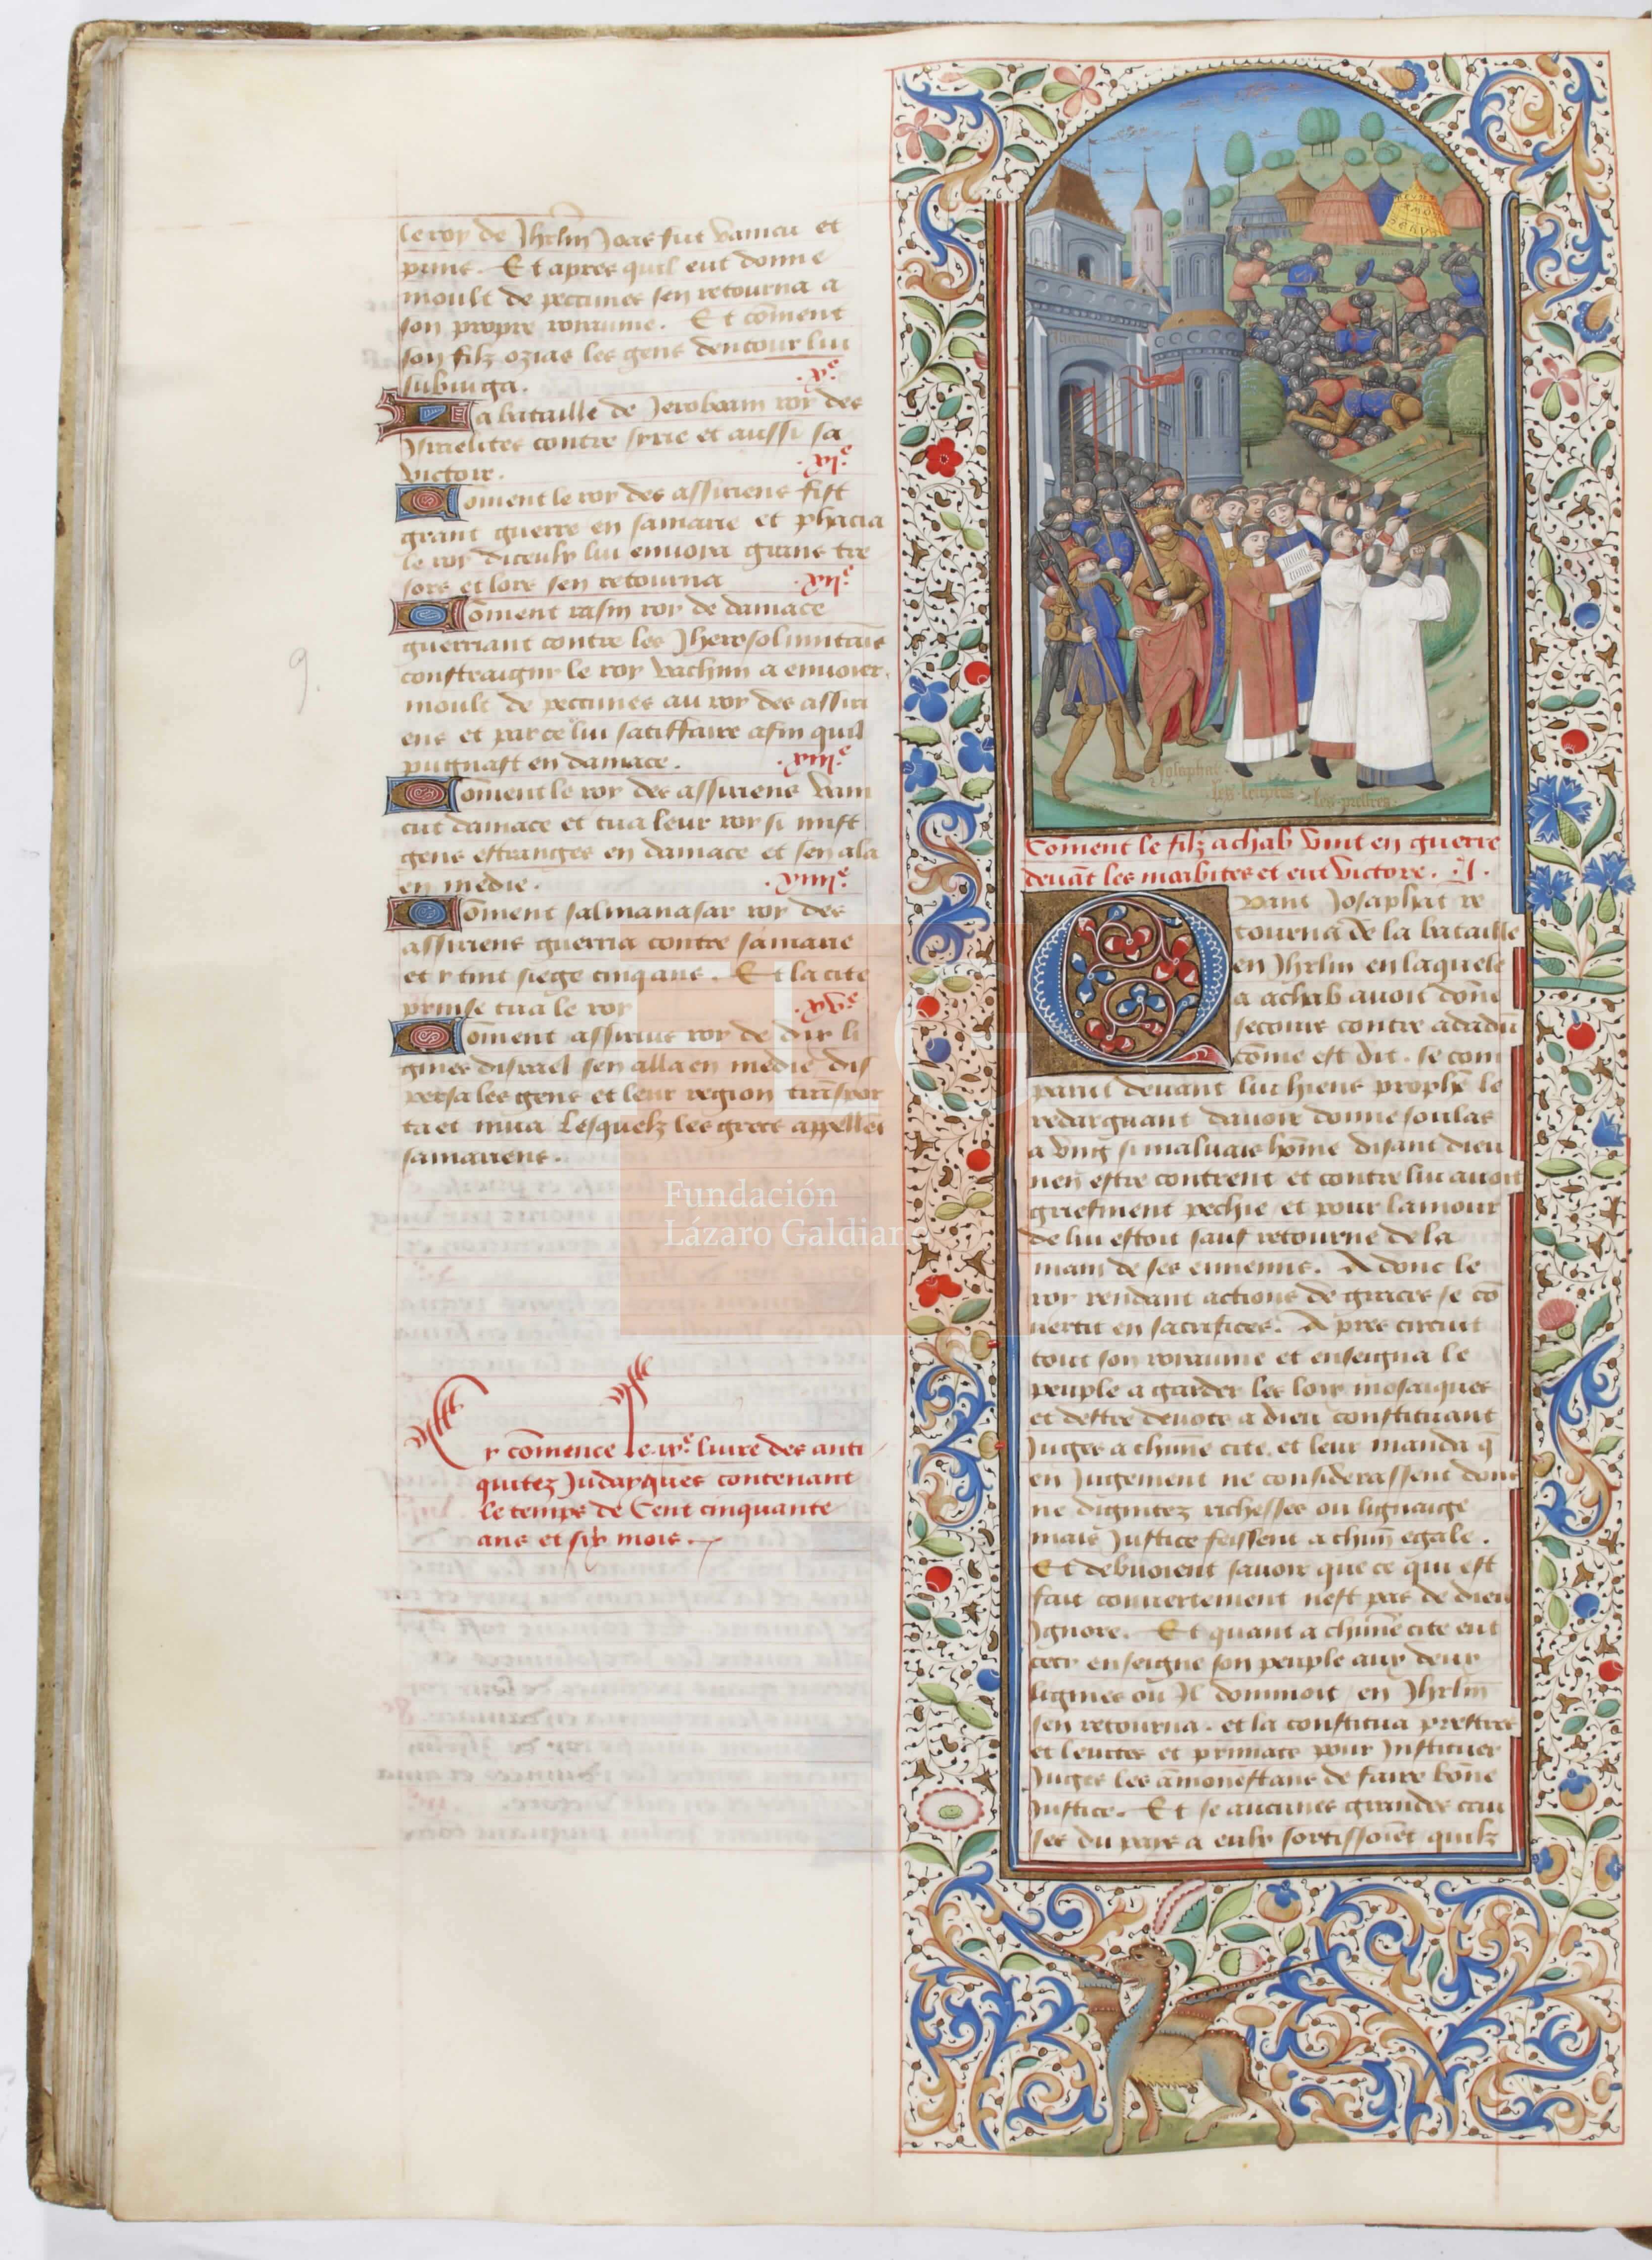 le roy de Jhrlm Joas fut vaincu et
prins. Et apres quil eut donne
moult de peccunes sen retourna a
son propre royaume. Et coment
son filz ozias les gens dentour lui
subiuga. .xe.
La bataille de Jeroboam roy des
Israelites contre syrie et aussi sa
victoire. .xie.
Coment le roy des assiriens fist
grant guerre en samarie et phacia
le roy diceulx lui envoia grans tre
sors et lors sen retourna .xiie.
Coment rasin roy de damace
guerriant contre les Jherosolimitans
constraignir le roy vachim a envoier
moult de peccunes au roy des assiri
ens et par ce lui satiffaire afin quil
pugnast en damace. .xiiie.
Coment le roy des assiriens vain
cut damace et tua leur roy si mist
gens estranges en damace et sen ala
en medie. .xiiiie.
Coment salmanasar roy des
assiriens guerria contre samarie
et y tint siege cinq ans. Et la cite
prinse tua le roy .xve.
Coment assirius roy de dix li
gnies disrael sen alla en medie dis
persa les gens et leur region transpor
ta et mua Lesquelz les grecs appelles
samariens.
Cy comence le ixe. livre des anti
quitez Judayques contenant
le temps de Cent cinquante
ans et six mois.
9.
Josaphat.
les levites. les prestres.
Coment le filz achab vint en guerre
devant les moabites et eut victore. .i.
Quant Josaphat re
tourna de la bataille
en Jhrlm en laquele
a achab avoit done
secours contre adadu
come est dit. se com
parut devant lui hieus prophe le
redarguant davoir donne soulas
a ung si malvais home disant dieu
nen estre contrent et contre lui avoit
griefment pechie et pour lamour
de lui estoit sauf retourne de la
main de ses ennemis. Adonc le
roy rendant actions de graces se co
nertit en sacrifices. Apres circuit
tout son royaume et enseigna le
peuple a garder les loix mosaiques
et destre devots a dieu constituant
Juges a chune cite et leur manda q
en Jugement ne considerassent dons
ne dignitez richesses ou lignaige
mais Justice feissent a chun egale.
Et debvoient savoir que ce qui est
fait couvertement nest pas de dieu
Ignore. Et quant a chune cite eut
cecy enseigne son peuple aux deux
lignies ou Il dominoit en Jhrlm
sen retourna. et la constitua prestres
et levites et primats pour Instituer
Juges les amonestans de faire bone
Justice. Et se aucunes grandes cau
ses du pays a eulx sortissoiet quilz
Fundación
Lázaro Galdiano